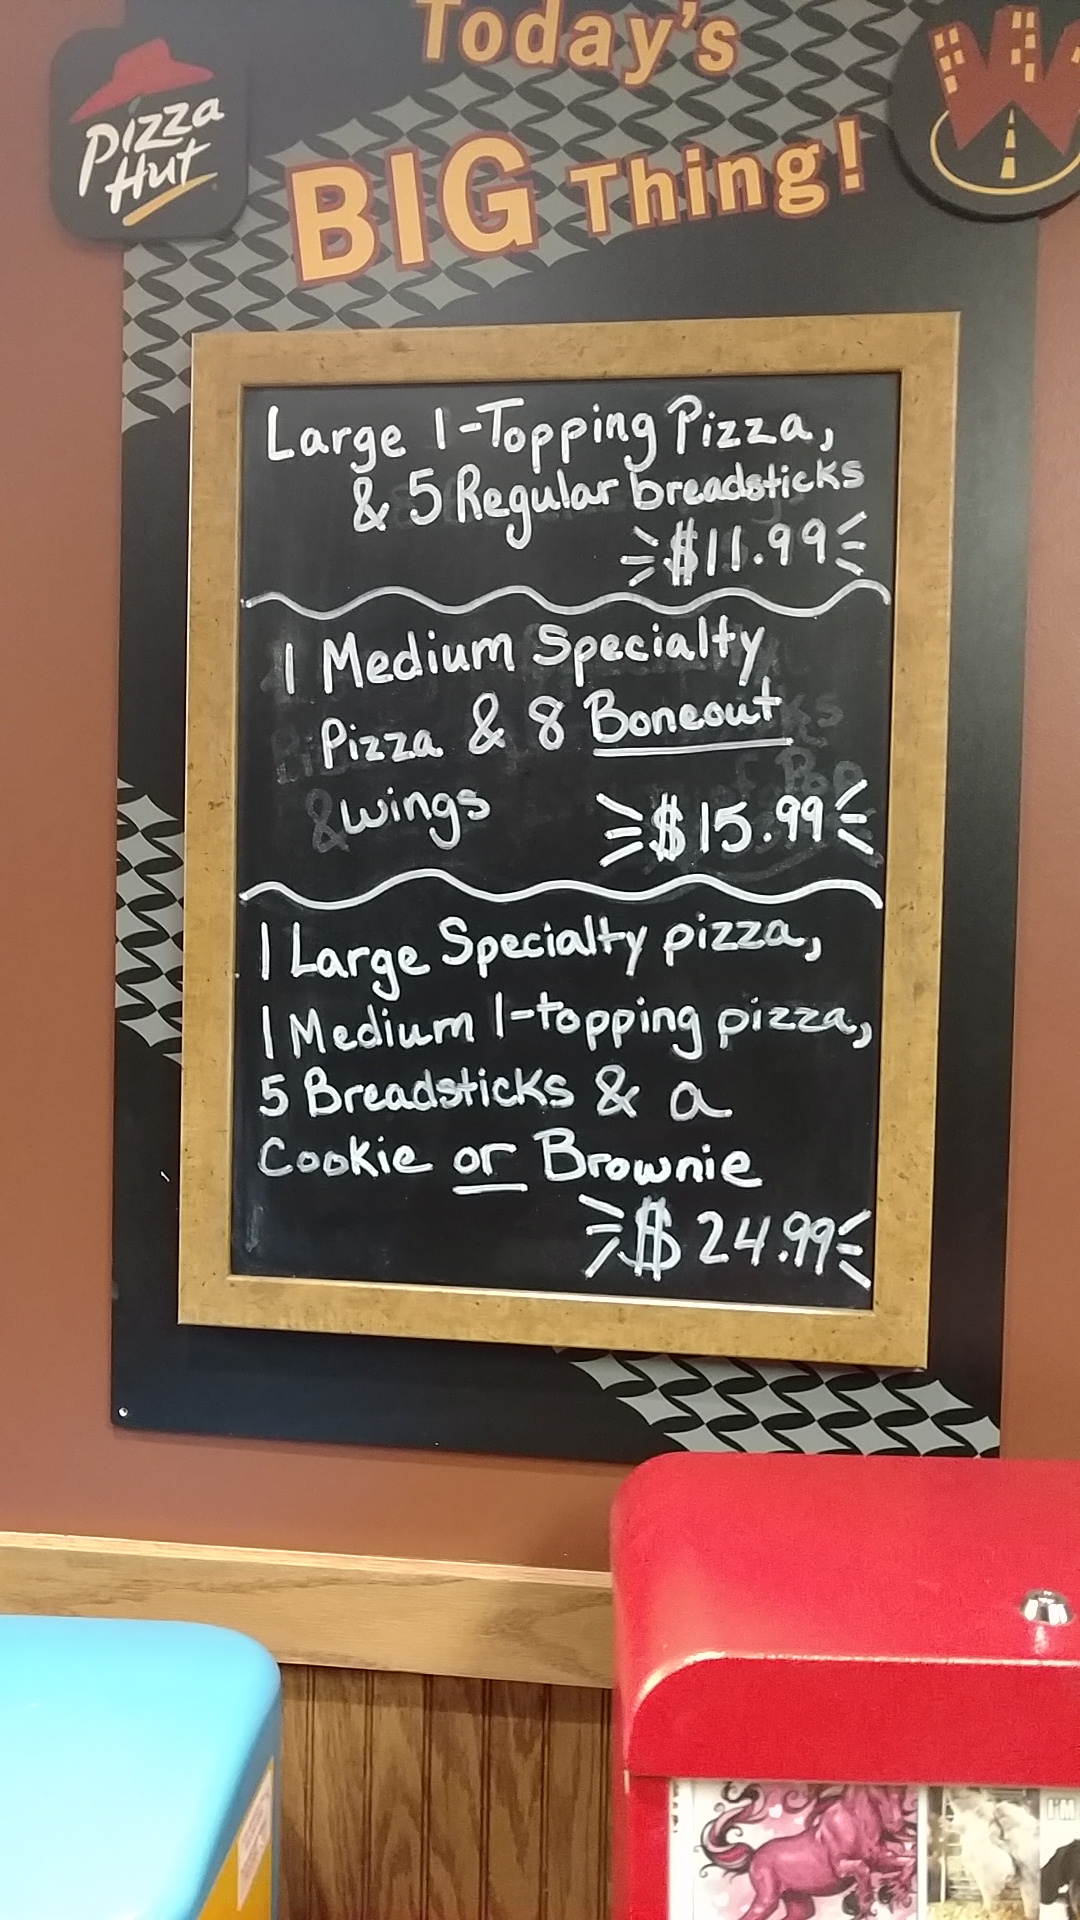 Today's
Pizza
Hut
BIG Thing!
Large 1-Topping Pizza,
& 5 Regular breadsticks
$11.99
1 Medium Specialty
Pizza & 8 Boneout
wings
$15.99
1 Large Specialty pizza,
1 Medium 1-topping pizza,
5 Breadsticks & a
Cookie or Brownie
$24.99
I'M